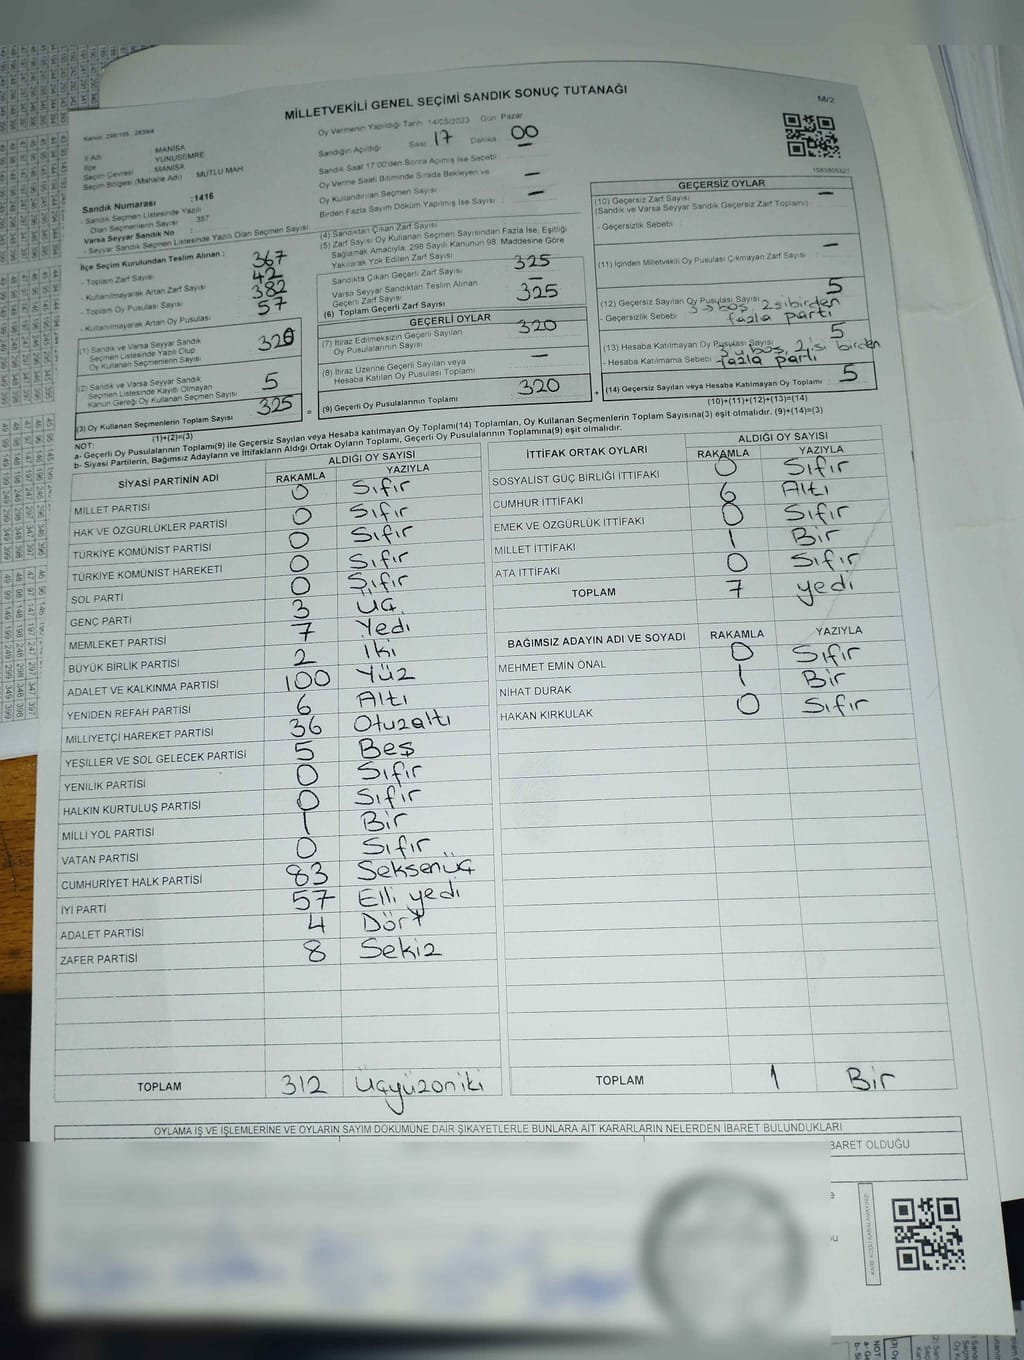 MİLLETVEKİLİ GENEL SEÇİMİ SANDIK SONUÇ TUTANAĞI
M/2
Oy Vermenin Yapıldığı Tarih 14/05/2023 Gün Pazar
İl Adı MANİSA
İlçe YUNUSEMRE
Seçim Çevresi MANİSA
Seçim Bölgesi (Mahalle Adı) MUTLU MAH
Sandığın Açıldığı Saat 17 Dakika 00
Sandık Saat 17:00'den Sonra Açılmış İse Sebebi
Oy Verme Saati Bitiminde Sırada Bekleyen ve
Oy Kullandırılan Seçmen Sayısı –
Birden Fazla Sayım Döküm Yapılmış İse Sayısı –
1083805327
Sandık Numarası :1416
- Sandık Seçmen Listesinde Yazılı
Olan Seçmenlerin Sayısı : 357
Varsa Seyyar Sandık No
- Seyyar Sandık Seçmen Listesinde Yazılı Olan Seçmen Sayısı
İlçe Seçim Kurulundan Teslim Alınan :
- Toplam Zarf Sayısı 367
- Kullanılmayarak Artan Zarf Sayısı 42
- Toplam Oy Pusulası Sayısı 382
- Kullanılmayarak Artan Oy Pusulası 57
(1) Sandık ve Varsa Seyyar Sandık
Seçmen Listesinde Yazılı Olup
Oy Kullanan Seçmenlerin Sayısı 320
(2) Sandık ve Varsa Seyyar Sandık
Seçmen Listesinde Kayıtlı Olmayan
Kanun Gereği Oy Kullanan Seçmen Sayısı 5
(3) Oy Kullanan Seçmenlerin Toplam Sayısı 325
(1)+(2)=(3)
(4) Sandıktan Çıkan Zarf Sayısı
(5) Zarf Sayısı Oy Kullanan Seçmen Sayısından Fazla İse, Eşitliği
Sağlamak Amacıyla, 298 Sayılı Kanunun 98. Maddesine Göre
Yakılarak Yok Edilen Zarf Sayısı
Sandıkta Çıkan Geçerli Zarf Sayısı 325
Varsa Seyyar Sandıktan Teslim Alınan
Geçerli Zarf Sayısı –
(6) Toplam Geçerli Zarf Sayısı 325
GEÇERLİ OYLAR
(7) İtiraz Edilmeksizin Geçerli Sayılan
Oy Pusulalarının Sayısı 320
(8) İtiraz Üzerine Geçerli Sayılan veya
Hesaba Katılan Oy Pusulası Toplamı –
(9) Geçerli Oy Pusulalarının Toplamı 320
GEÇERSİZ OYLAR
(10) Geçersiz Zarf Sayısı –
(Sandık ve Varsa Seyyar Sandık Geçersiz Zarf Toplamı)
- Geçersizlik Sebebi
(11) İçinden Milletvekili Oy Pusulası Çıkmayan Zarf Sayısı –
(12) Geçersiz Sayılan Oy Pusulası Sayısı 5
- Geçersizlik Sebebi 3 boş, 2si birden
fazla parti
(13) Hesaba Katılmayan Oy Pusulası Sayısı 5
- Hesaba Katılmama Sebebi 3ü boş, 2 isi birden
fazla parti
(14) Geçersiz Sayılan veya Hesaba Katılmayan Oy Toplamı 5
(10)+(11)+(12)+(13)=(14)
NOT:
a- Geçerli Oy Pusulalarının Toplamı(9) ile Geçersiz Sayılan veya Hesaba katılmayan Oy Toplamı(14) Toplamları, Oy Kullanan Seçmenlerin Toplam Sayısına(3) eşit olmalıdır. (9)+(14)=(3)
b- Siyasi Partilerin, Bağımsız Adayların ve İttifakların Aldığı Ortak Oyların Toplamı, Geçerli Oy Pusulalarının Toplamına(9) eşit olmalıdır.
SİYASİ PARTİNİN ADI ALDIĞI OY SAYISI
RAKAMLA YAZIYLA
MİLLET PARTİSİ 0 Sıfır
HAK VE ÖZGÜRLÜKLER PARTİSİ 0 Sıfır
TÜRKİYE KOMÜNİST PARTİSİ 0 Sıfır
TÜRKİYE KOMÜNİST HAREKETİ 0 Sıfır
SOL PARTİ 0 Sıfır
GENÇ PARTİ 3 Üç
MEMLEKET PARTİSİ 7 Yedi
BÜYÜK BİRLİK PARTİSİ 2 İki
ADALET VE KALKINMA PARTİSİ 100 Yüz
YENİDEN REFAH PARTİSİ 6 Altı
MİLLİYETÇİ HAREKET PARTİSİ 36 Otuzaltı
YEŞİLLER VE SOL GELECEK PARTİSİ 5 Beş
YENİLİK PARTİSİ 0 Sıfır
HALKIN KURTULUŞ PARTİSİ 0 Sıfır
MİLLİ YOL PARTİSİ 1 Bir
VATAN PARTİSİ 0 Sıfır
CUMHURİYET HALK PARTİSİ 83 Seksenüç
İYİ PARTİ 57 Elli yedi
ADALET PARTİSİ 4 Dört
ZAFER PARTİSİ 8 Sekiz
TOPLAM 312 Üçyüzoniki
İTTİFAK ORTAK OYLARI ALDIĞI OY SAYISI
RAKAMLA YAZIYLA
SOSYALİST GÜÇ BİRLİĞİ İTTİFAKI 0 Sıfır
CUMHUR İTTİFAKI 6 Altı
EMEK VE ÖZGÜRLÜK İTTİFAKI 0 Sıfır
MİLLET İTTİFAKI 1 Bir
ATA İTTİFAKI 0 Sıfır
TOPLAM 7 yedi
BAĞIMSIZ ADAYIN ADI VE SOYADI RAKAMLA YAZIYLA
MEHMET EMİN ÖNAL 0 Sıfır
NİHAT DURAK 1 Bir
HAKAN KIRKULAK 0 Sıfır
TOPLAM 1 Bir
OYLAMA İŞ VE İŞLEMLERİNE VE OYLARIN SAYIM DÖKÜMÜNE DAİR ŞİKAYETLERLE BUNLARA AİT KARARLARIN NELERDEN İBARET BULUNDUKLARI
BARET OLDUĞU